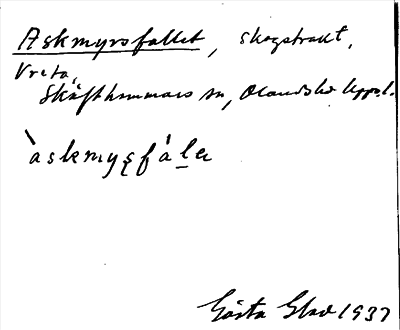 Askmyrsfallet, skogstrakt,
Vreta,
Skäfthammars sn, Olands hd Uppl.
àskmyşfáḷe
Gösta Glad 1937